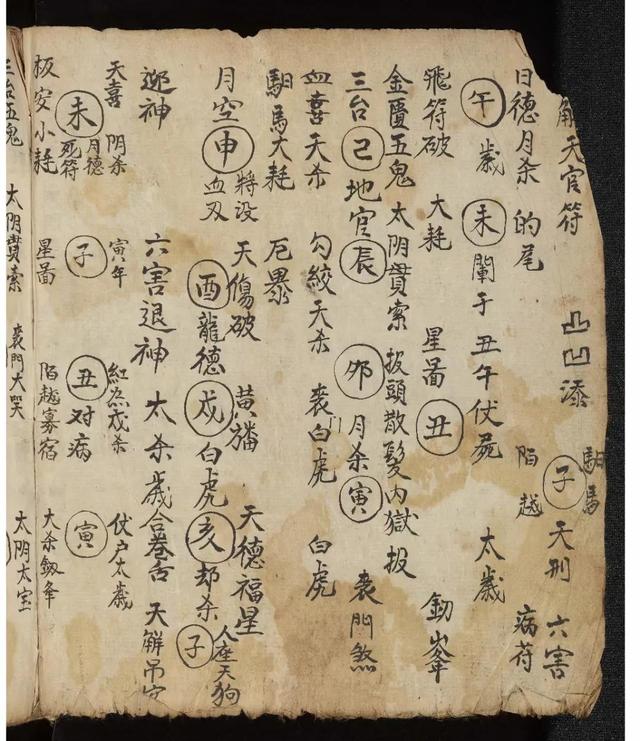 解天官符 凸凹添 馹馬
子 天刑 六害
日德月杀 的尾 陌越 病苻
午 歲 未 闌干 丑午伏屍 太歲
飛符破 大耗 星啚 丑 釰峯
金匱五鬼 太阴貫索 披頭散髮内獄扳
三台 己 地官 辰 夘 月杀 寅 丧門煞
血喜天杀 勾絞天杀 丧门白虎 白虎
馹馬大耗 厄暴
月空 申 將没 血刃 天傷破 黄旛 天德福星
酉 龍德 戍 白虎 亥 却杀 子 人座天狗
迎神 六害退神 太杀歲合卷舌 天解吊客
天喜 阴杀 寅年 紅烝戍杀 伏户太歲
未 月德 死符 子 丑 对病 寅
板安小耗 星啚 陌越寡宿 大杀釰峯
三台五鬼 太阴貫索 丧門大哭 太阴太宝